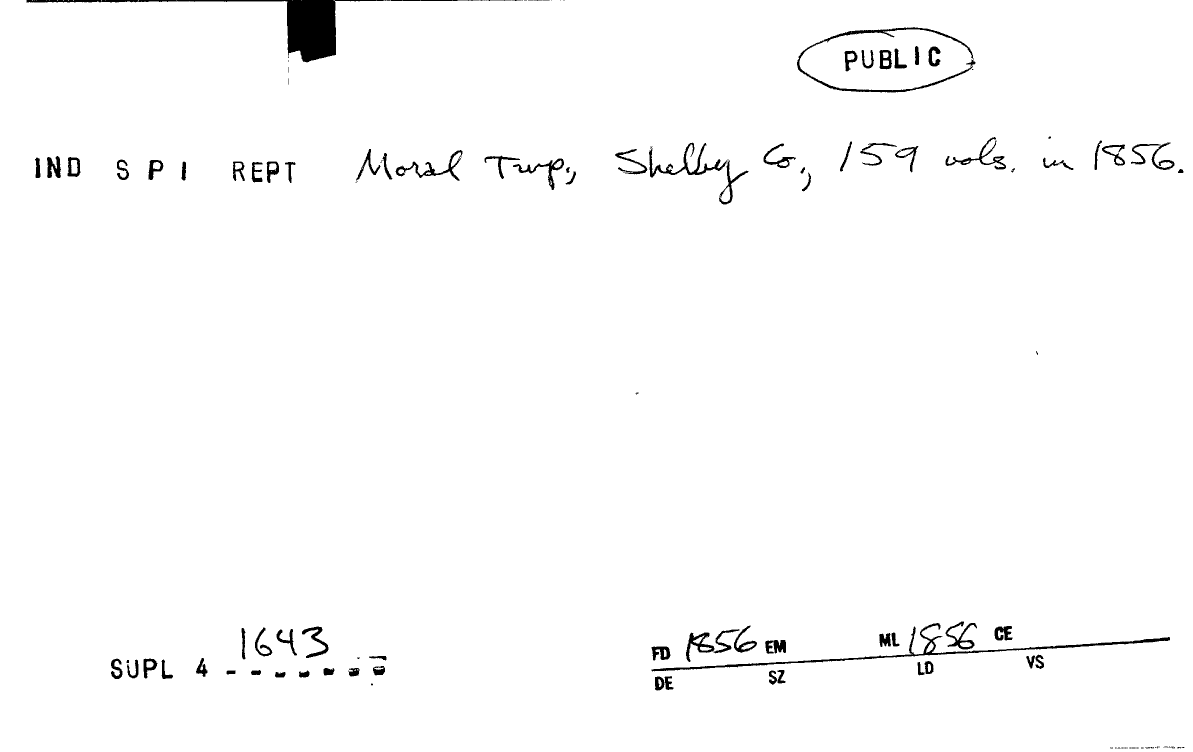 PUBLIC
IND S P I REPT Moral Twp., Shelby Co., 159 vols. in 1856.
1643
SUPL 4 - - - - - - -
FD 1856 EM ML 1856 CE
DE SZ LD VS